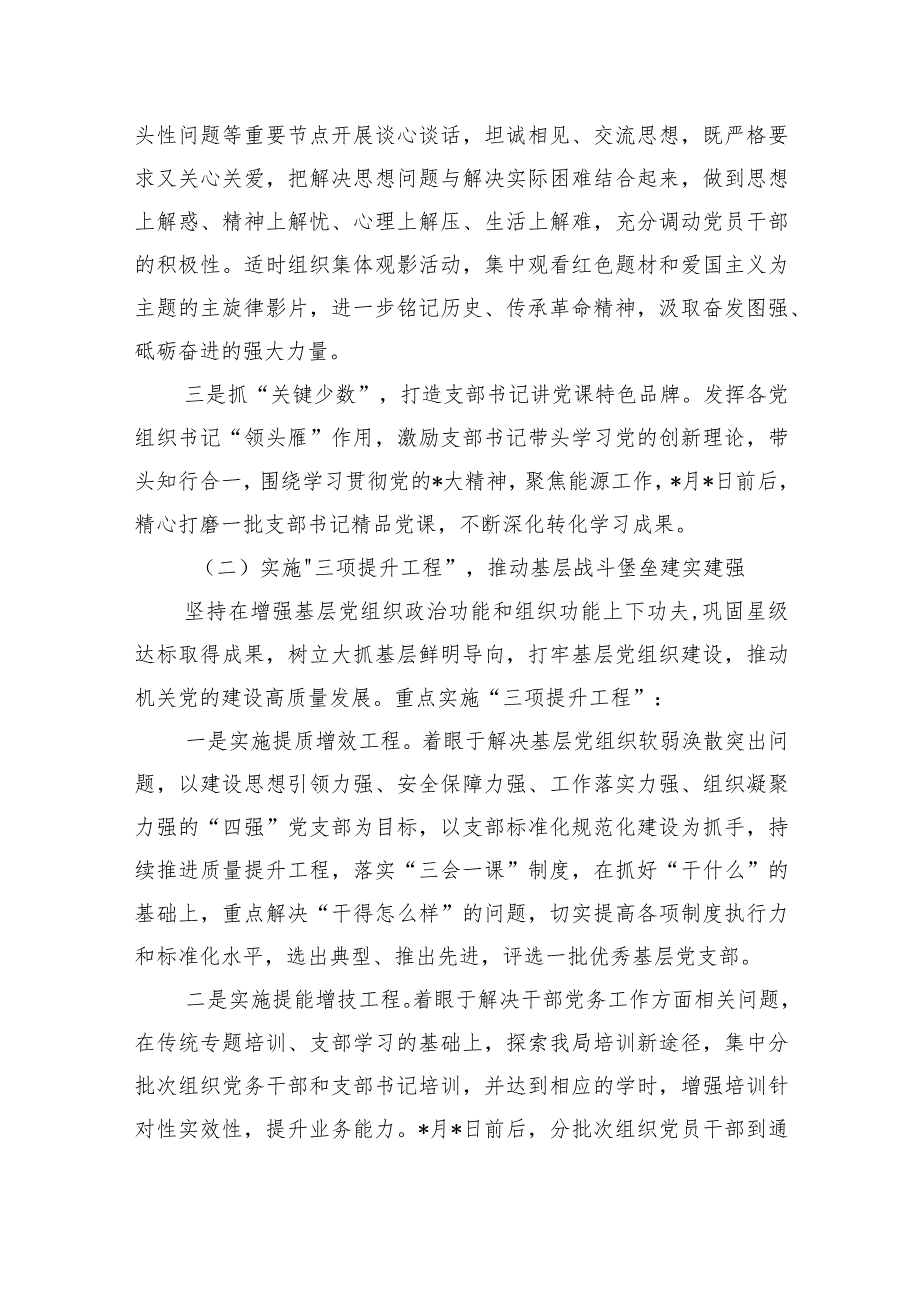 头性问题等重要节点开展谈心谈话，坦诚相见、交流思想，既严格要
求又关心关爱，把解决思想问题与解决实际困难结合起来，做到思想
上解惑、精神上解忧、心理上解压、生活上解难，充分调动党员干部
的积极性。适时组织集体观影活动，集中观看红色题材和爱国主义为
主题的主旋律影片，进一步铭记历史、传承革命精神，汲取奋发图强、
砥砺奋进的强大力量。
三是抓“关键少数”，打造支部书记讲党课特色品牌。发挥各党
组织书记“领头雁”作用，激励支部书记带头学习党的创新理论，带
头知行合一，围绕学习贯彻党的*大精神，聚焦能源工作，*月*日前后，
精心打磨一批支部书记精品党课，不断深化转化学习成果。
（二）实施"三项提升工程”，推动基层战斗堡垒建实建强
坚持在增强基层党组织政治功能和组织功能上下功夫,巩固星级
达标取得成果，树立大抓基层鲜明导向，打牢基层党组织建设，推动
机关党的建设高质量发展。重点实施“三项提升工程”：
一是实施提质增效工程。着眼于解决基层党组织软弱涣散突出问
题，以建设思想引领力强、安全保障力强、工作落实力强、组织凝聚
力强的“四强”党支部为目标，以支部标准化规范化建设为抓手，持
续推进质量提升工程，落实“三会一课”制度，在抓好“干什么”的
基础上，重点解决“干得怎么样”的问题，切实提高各项制度执行力
和标准化水平，选出典型、推出先进，评选一批优秀基层党支部。
二是实施提能增技工程。着眼于解决干部党务工作方面相关问题，
在传统专题培训、支部学习的基础上，探索我局培训新途径，集中分
批次组织党务干部和支部书记培训，并达到相应的学时，增强培训针
对性实效性，提升业务能力。*月*日前后，分批次组织党员干部到通